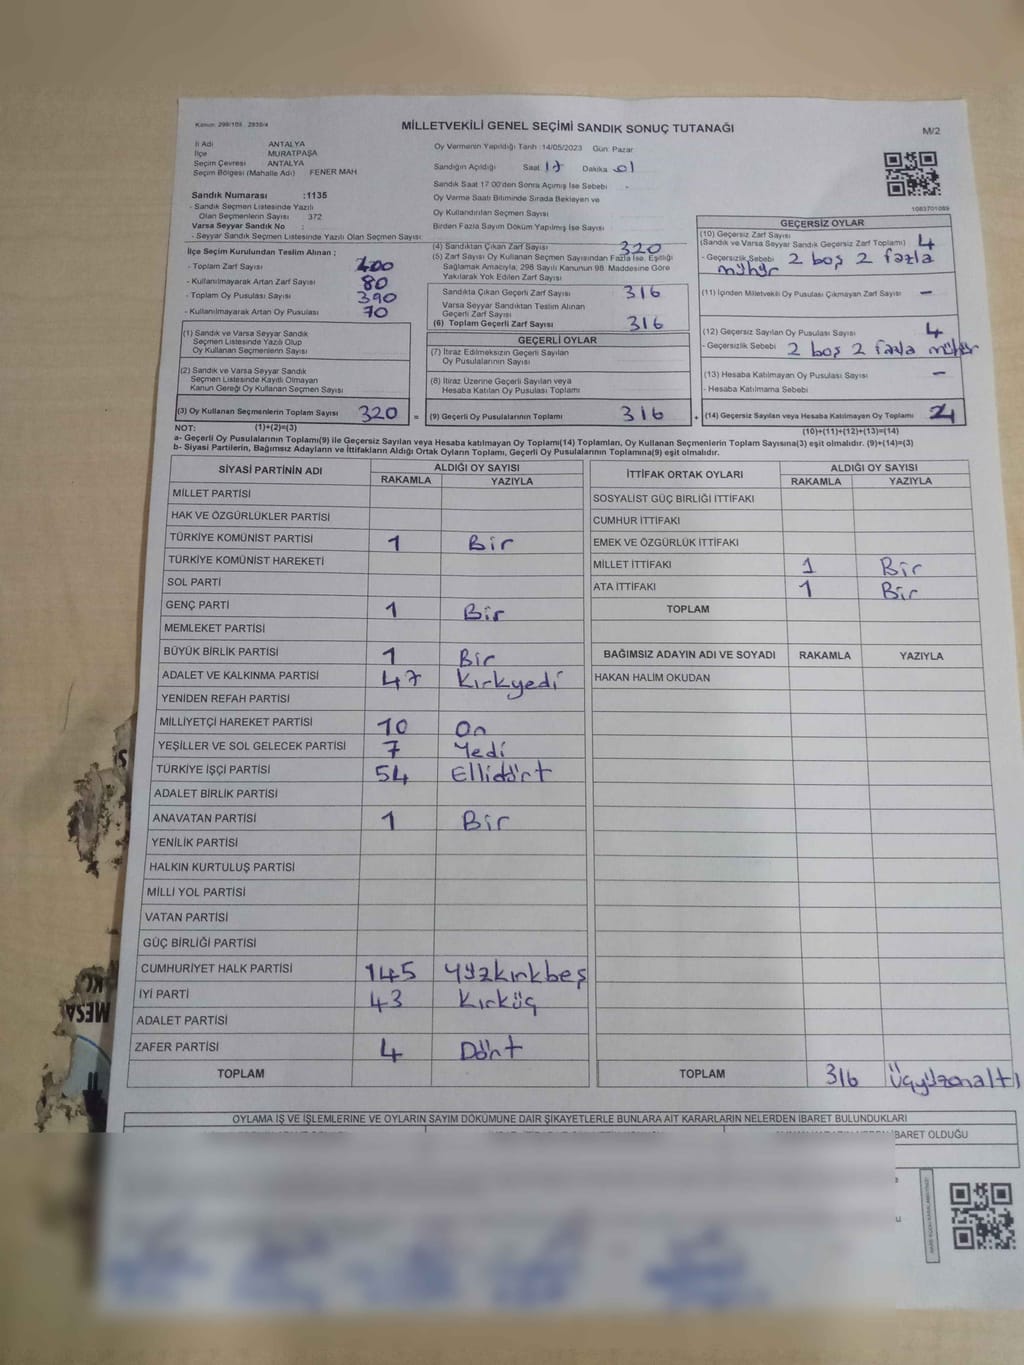 Kanun: 298/105 , 2839/4
MİLLETVEKİLİ GENEL SEÇİMİ SANDIK SONUÇ TUTANAĞI
M/2
İl Adı ANTALYA
İlçe MURATPAŞA
Seçim Çevresi ANTALYA
Seçim Bölgesi (Mahalle Adı) FENER MAH
Sandık Numarası :1135
- Sandık Seçmen Listesinde Yazılı
Olan Seçmenlerin Sayısı 372
Varsa Seyyar Sandık No :
- Seyyar Sandık Seçmen Listesinde Yazılı Olan Seçmen Sayısı
İlçe Seçim Kurulundan Teslim Alınan ;
- Toplam Zarf Sayısı 400
- Kullanılmayarak Artan Zarf Sayısı 80
- Toplam Oy Pusulası Sayısı 390
- Kullanılmayarak Artan Oy Pusulası 70
(1) Sandık ve Varsa Seyyar Sandık
Seçmen Listesinde Yazılı Olup
Oy Kullanan Seçmenlerin Sayısı
(2) Sandık ve Varsa Seyyar Sandık
Seçmen Listesinde Kayıtlı Olmayan
Kanun Gereği Oy Kullanan Seçmen Sayısı
(3) Oy Kullanan Seçmenlerin Toplam Sayısı 320 =
(1)+(2)=(3)
Oy Vermenin Yapıldığı Tarih :14/05/2023 Gün: Pazar
Sandığın Açıldığı Saat 17 Dakika 01
Sandık Saat 17:00'den Sonra Açımış İse Sebebi -
Oy Verme Saati Bitiminde Sırada Bekleyen ve
Oy Kullandırılan Seçmen Sayısı
Birden Fazla Sayım Döküm Yapılmış İse Sayısı
(4) Sandıktan Çıkan Zarf Sayısı 320
(5) Zarf Sayısı Oy Kullanan Seçmen Sayısından Fazla İse, Eşitliği
Sağlamak Amacıyla, 298 Sayılı Kanunun 98. Maddesine Göre
Yakılarak Yok Edilen Zarf Sayısı
Sandıkta Çıkan Geçerli Zarf Sayısı 316
Varsa Seyyar Sandıktan Teslim Alınan
Geçerli Zarf Sayısı
(6) Toplam Geçerli Zarf Sayısı 316
GEÇERLİ OYLAR
(7) İtiraz Edilmeksizin Geçerli Sayılan
Oy Pusulalarının Sayısı
(8) İtiraz Üzerine Geçerli Sayılan veya
Hesaba Katılan Oy Pusulası Toplamı
(9) Geçerli Oy Pusulalarının Toplamı 316 +
1083701089
GEÇERSİZ OYLAR
(10) Geçersiz Zarf Sayısı
(Sandık ve Varsa Seyyar Sandık Geçersiz Zarf Toplamı) 4
- Geçersizlik Sebebi 2 boş 2 fazla
mühür
(11) İçinden Milletvekili Oy Pusulası Çıkmayan Zarf Sayısı -
(12) Geçersiz Sayılan Oy Pusulası Sayısı 4
- Geçersizlik Sebebi 2 boş 2 fazla mühür
(13) Hesaba Katılmayan Oy Pusulası Sayısı -
- Hesaba Katılmama Sebebi
(14) Geçersiz Sayılan veya Hesaba Katılmayan Oy Toplamı 4
(10)+(11)+(12)+(13)=(14)
NOT:
a- Geçerli Oy Pusulalarının Toplamı(9) ile Geçersiz Sayılan veya Hesaba katılmayan Oy Toplamı(14) Toplamları, Oy Kullanan Seçmenlerin Toplam Sayısına(3) eşit olmalıdır. (9)+(14)=(3)
b- Siyasi Partilerin, Bağımsız Adayların ve İttifakların Aldığı Ortak Oyların Toplamı, Geçerli Oy Pusulalarının Toplamına(9) eşit olmalıdır.
SİYASİ PARTİNİN ADI ALDIĞI OY SAYISI
RAKAMLA YAZIYLA
MİLLET PARTİSİ
HAK VE ÖZGÜRLÜKLER PARTİSİ
TÜRKİYE KOMÜNİST PARTİSİ 1 Bir
TÜRKİYE KOMÜNİST HAREKETİ
SOL PARTİ
GENÇ PARTİ 1 Bir
MEMLEKET PARTİSİ
BÜYÜK BİRLİK PARTİSİ 1 Bir
ADALET VE KALKINMA PARTİSİ 47 Kırkyedi
YENİDEN REFAH PARTİSİ
MİLLİYETÇİ HAREKET PARTİSİ 10 On
YEŞİLLER VE SOL GELECEK PARTİSİ 7 Yedi
TÜRKİYE İŞÇİ PARTİSİ 54 Ellidört
ADALET BİRLİK PARTİSİ
ANAVATAN PARTİSİ 1 Bir
YENİLİK PARTİSİ
HALKIN KURTULUŞ PARTİSİ
MİLLİ YOL PARTİSİ
VATAN PARTİSİ
GÜÇ BİRLİĞİ PARTİSİ
CUMHURİYET HALK PARTİSİ 145 Yüzkırkbeş
İYİ PARTİ 43 Kırküç
ADALET PARTİSİ
ZAFER PARTİSİ 4 Dört
TOPLAM
İTTİFAK ORTAK OYLARI ALDIĞI OY SAYISI
RAKAMLA YAZIYLA
SOSYALİST GÜÇ BİRLİĞİ İTTİFAKI
CUMHUR İTTİFAKI
EMEK VE ÖZGÜRLÜK İTTİFAKI
MİLLET İTTİFAKI 1 Bir
ATA İTTİFAKI 1 Bir
TOPLAM
BAĞIMSIZ ADAYIN ADI VE SOYADI RAKAMLA YAZIYLA
HAKAN HALİM OKUDAN
TOPLAM 316 Üçyüzonaltı
OYLAMA İŞ VE İŞLEMLERİNE VE OYLARIN SAYIM DÖKÜMÜNE DAİR ŞİKAYETLERLE BUNLARA AİT KARARLARIN NELERDEN İBARET BULUNDUKLARI
İBARET OLDUĞU
MESA